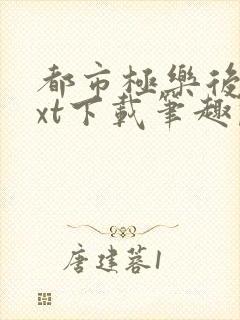 都市極樂後
xt下載筆趣
唐建蓉1